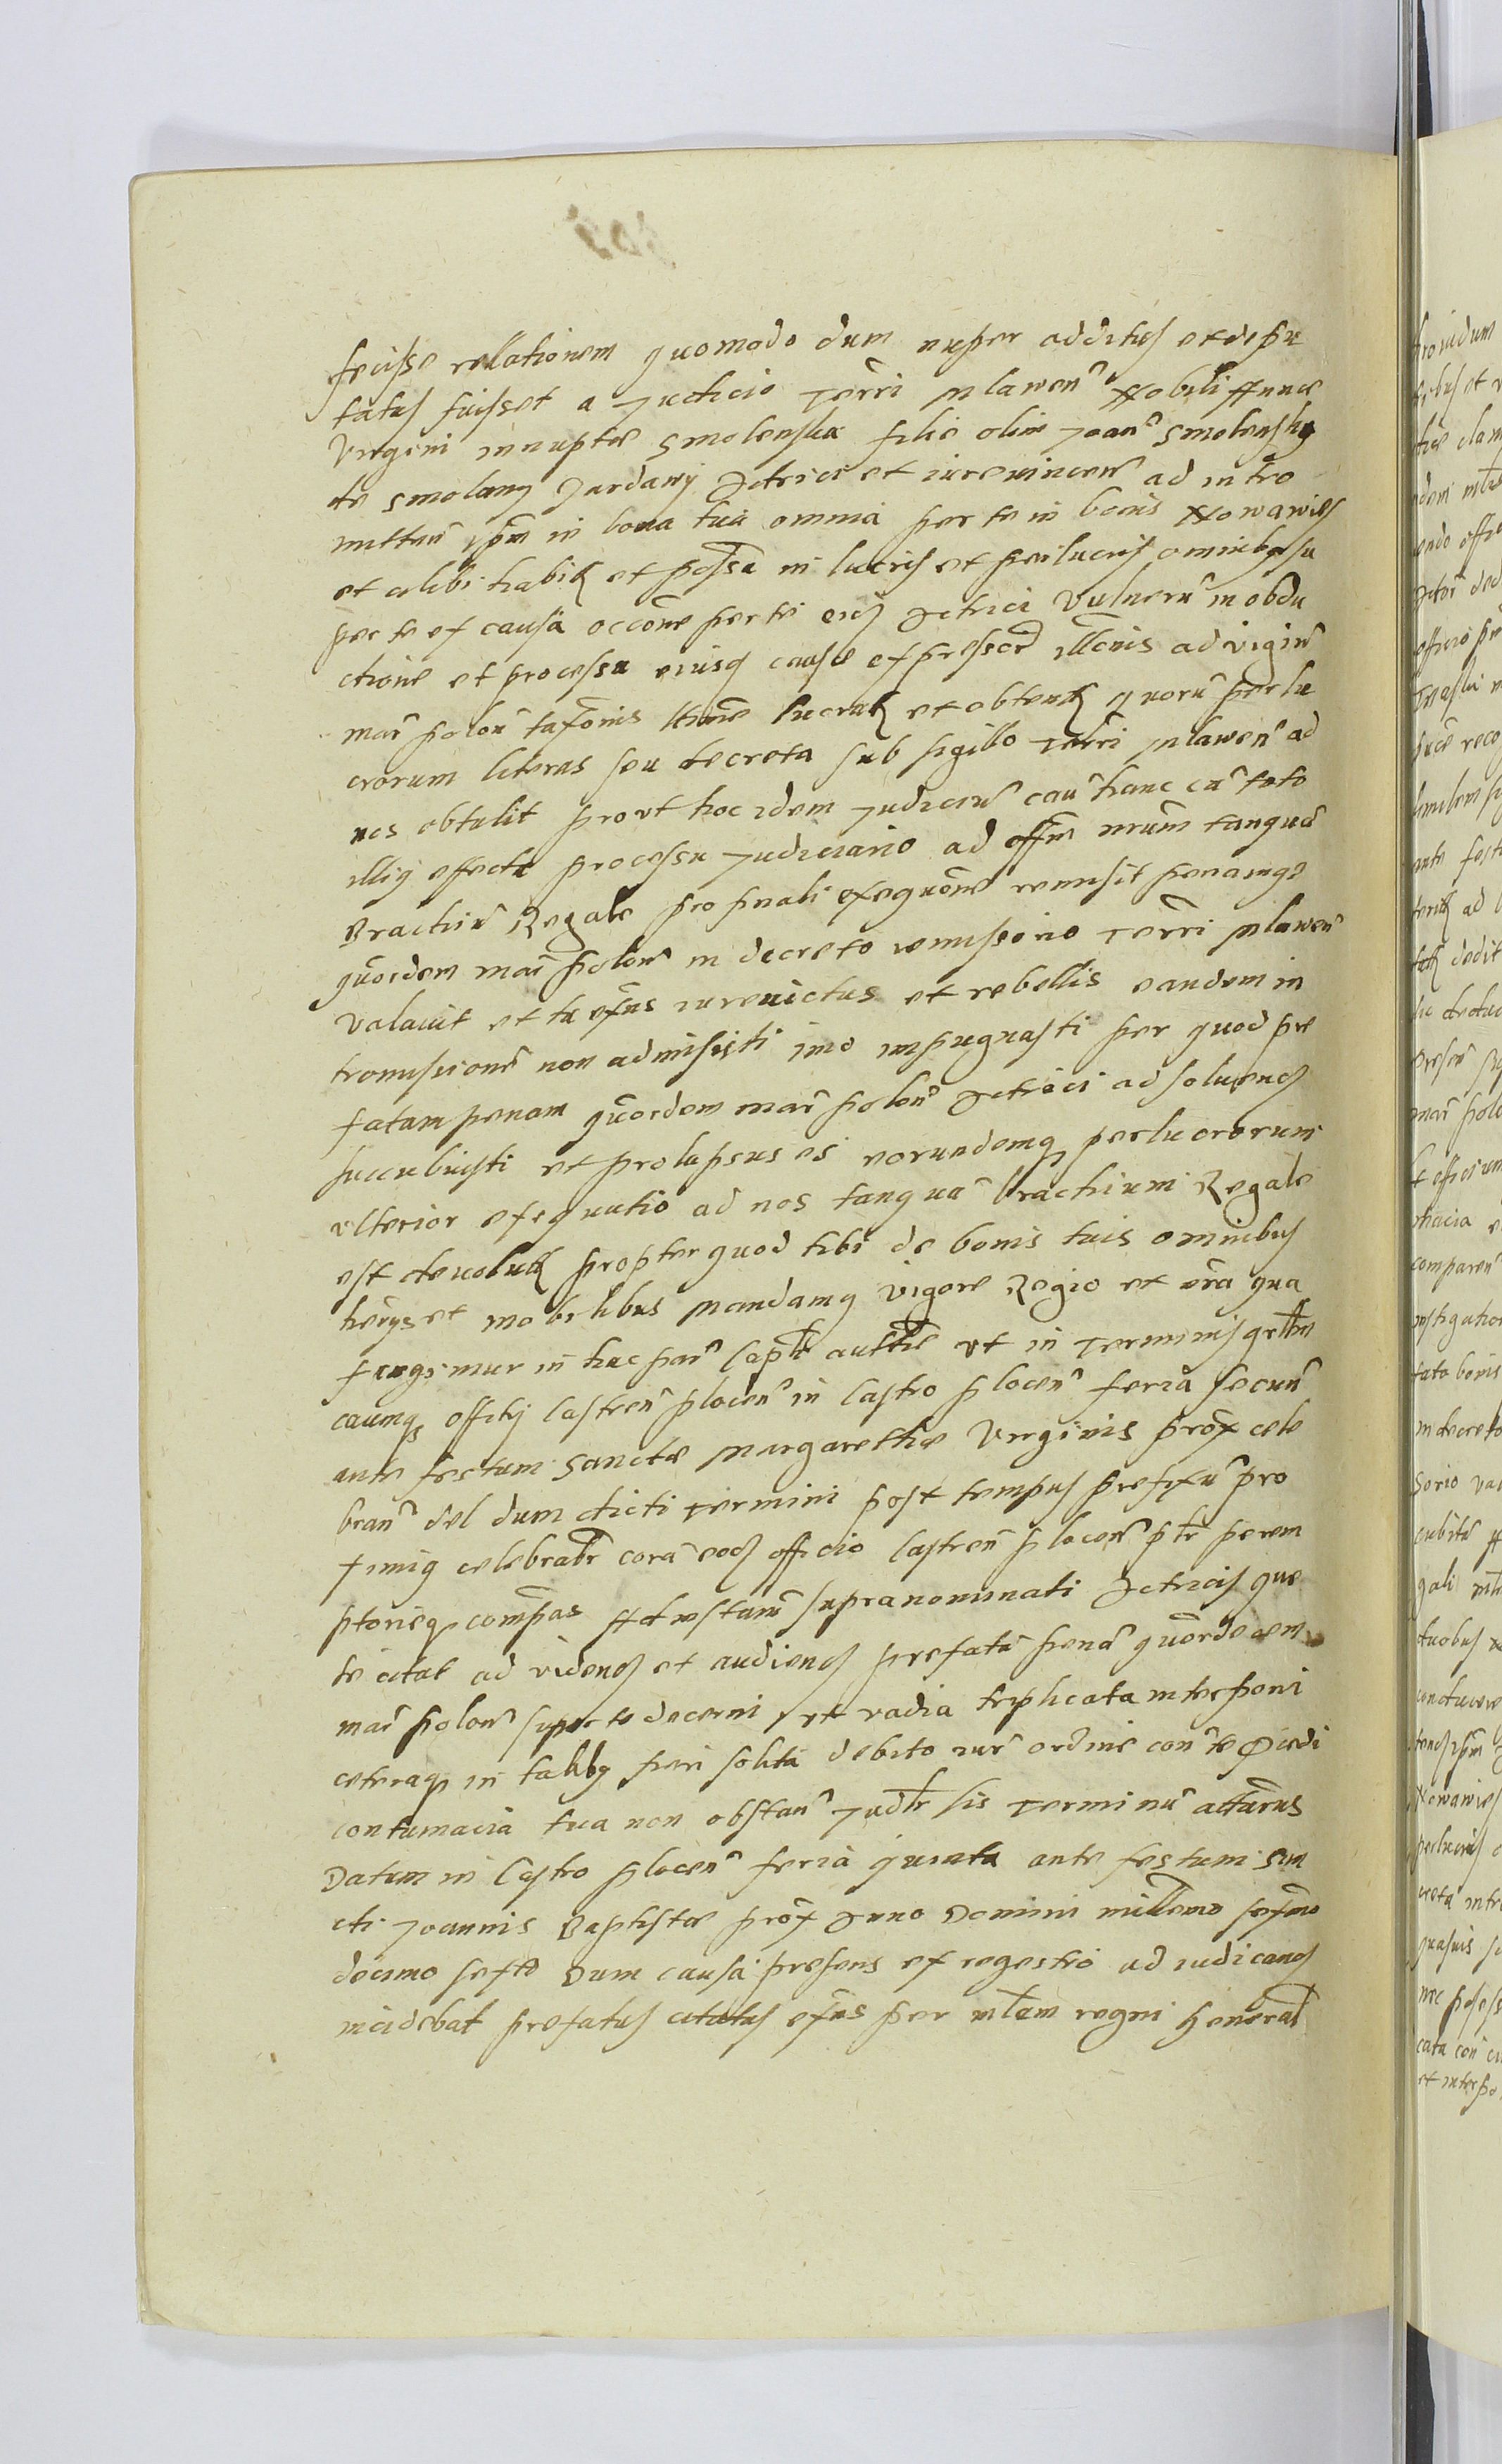 fecisse relationem quomodo dum nuper additus et depu
tatus fuisset a Judicio Terri Mlawen Nobili Annæ
Virgini innuptæ Smolenska filie olim Joan Smolensky
de Smolany Zardawy Actrici et iurevincen ad intro
mitten ipm in bona tua omnia per te in bonis Nowawies
et alibi habit et possa in lucris et perlucris omnibq su
per te ex causa occone per te eid Actrici Vulnerũ in obdu
ctione et processu eiusq cause expressor illonis ad vigin
mar polon taxonis ltime lucrat et obtent quorũ perlu
crorum literas seu decreta sub sigillo Terri Mlawen ad
nos obtulit prout hoc idem Judiciũ cau hanc cũ toto
illiq effectu processu Judiciario ad offm nrum tanquã
Brachiũ Regale pro finali exequone remisit penamqe
quordem mar polon in decreto remissorio Terri Mlawen
Valavit et tu exns iurevictus et rebellis eandem in
tromissionẽ non admisisti imo impugnasti per quod pre
fatam penam quordem mar polon Actrici ad solvend
succubuisti et prolapsus es eorundemq perlucrorum
ulterior exequutio ad nos tanquã brachium Regale
est devolut propter quod tibi de bonis tuis omnibus
herijs et mobilibus Mandamq vigore Regio et nra qua
fungimur in hac par Captr autte ut in Terminis qrelm
caumq officij Castren plocen in Castro plocen feria secun
ante festum Sanctæ Margarethæ Virginis prox cele
bran Vel dum dicti Termini post tempus prefixũ pro
ximiq celebrabr corã eod officio Castren plocen ptr perem
ptorieq compas Ad instanr supranominati Actricis que
te citat ad videnđ et audienđ prefatã penã quordecem
mar polon super te decerni et vadia triplicata interponi
ceteraq in talibq fieri solita debito iur ordine con te predi
contumacia tua non obstan Judlr sis Terminũ attarus
Datum in Castro plocen feria quinta ante festum San
cti Joannis Baptistæ prox Anno Domini millemo sexmo
decimo sexto Dum causa presens ex regestro ad iudicand
incidebat prefatus citatus exns per mlem regni Heneral